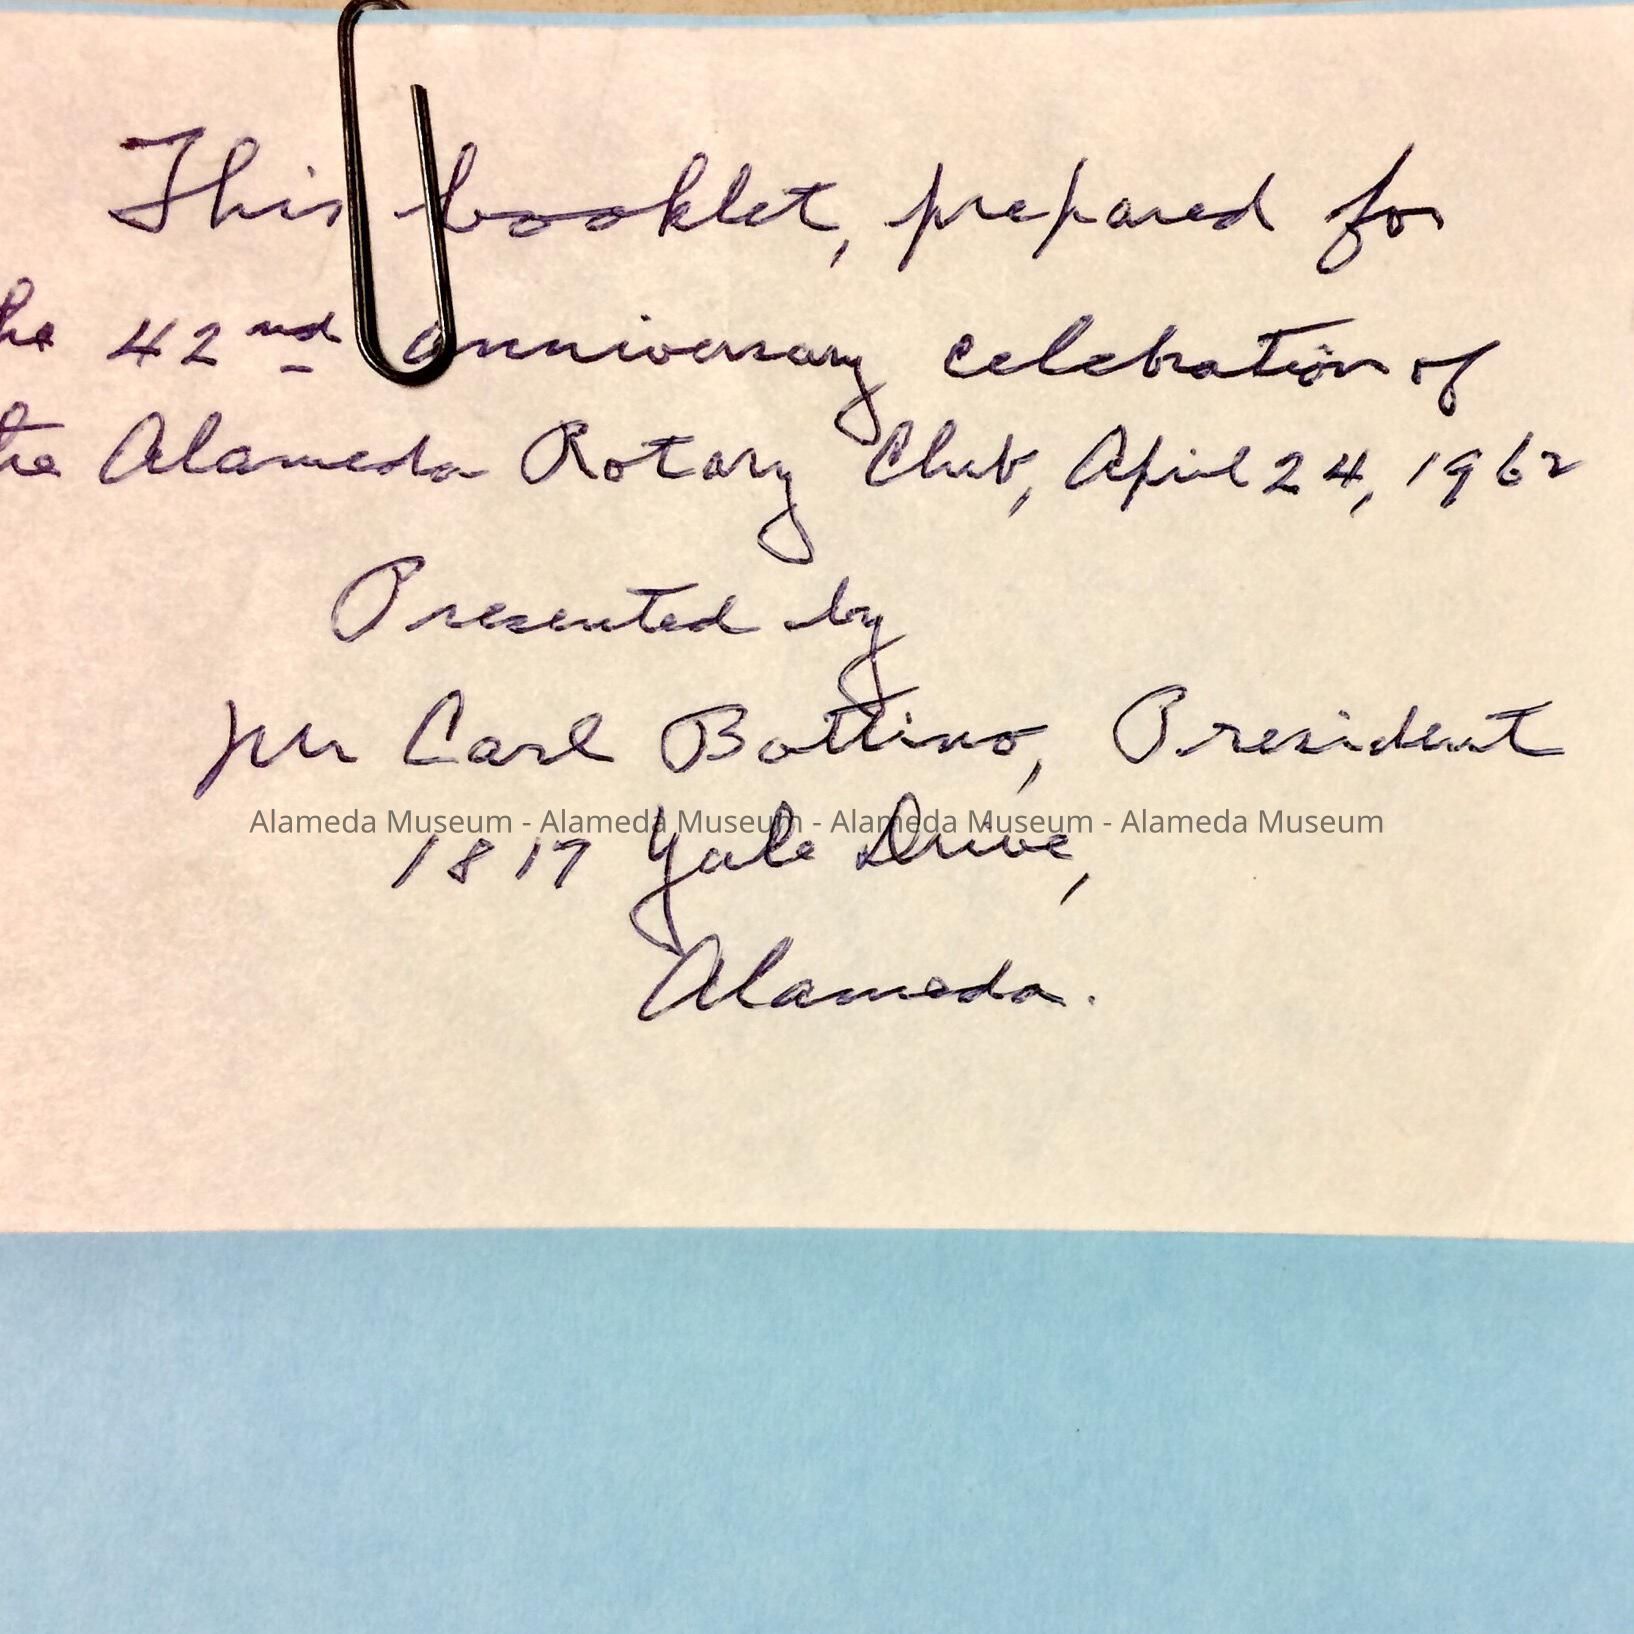 This booklet, prepared for
he 42nd anniversary celebration of
the Alameda Rotary Club, April 24, 1962
Presented by
Mr Carl Bottino, President
Alameda Museum - Alameda Museum - Alameda Museum - Alameda Museum
1817 Yale Drive,
Alameda.